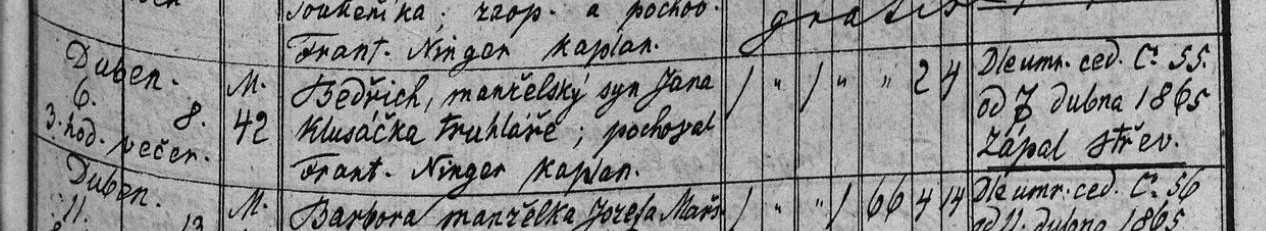 Soukeníka; zaop. a pochov.
gratis
Frant. Ninger kaplan.
Duben.
6. 8.
3. hod. večer.
M.
42
Bedřich, manželský syn Jana
Klusáčka truhláře; pochoval
Frant. Ninger kaplan.
/ " / " " 2 4
Dle umr. ced. Č: 55.
od 7 dubna 1865
Zápal střev.
Duben.
11. 13
M.
Barbora manželka Jozefa Marš
/ " " / 66 4 14
Dle umr. ced. Č: 56
od 11. dubna 1865